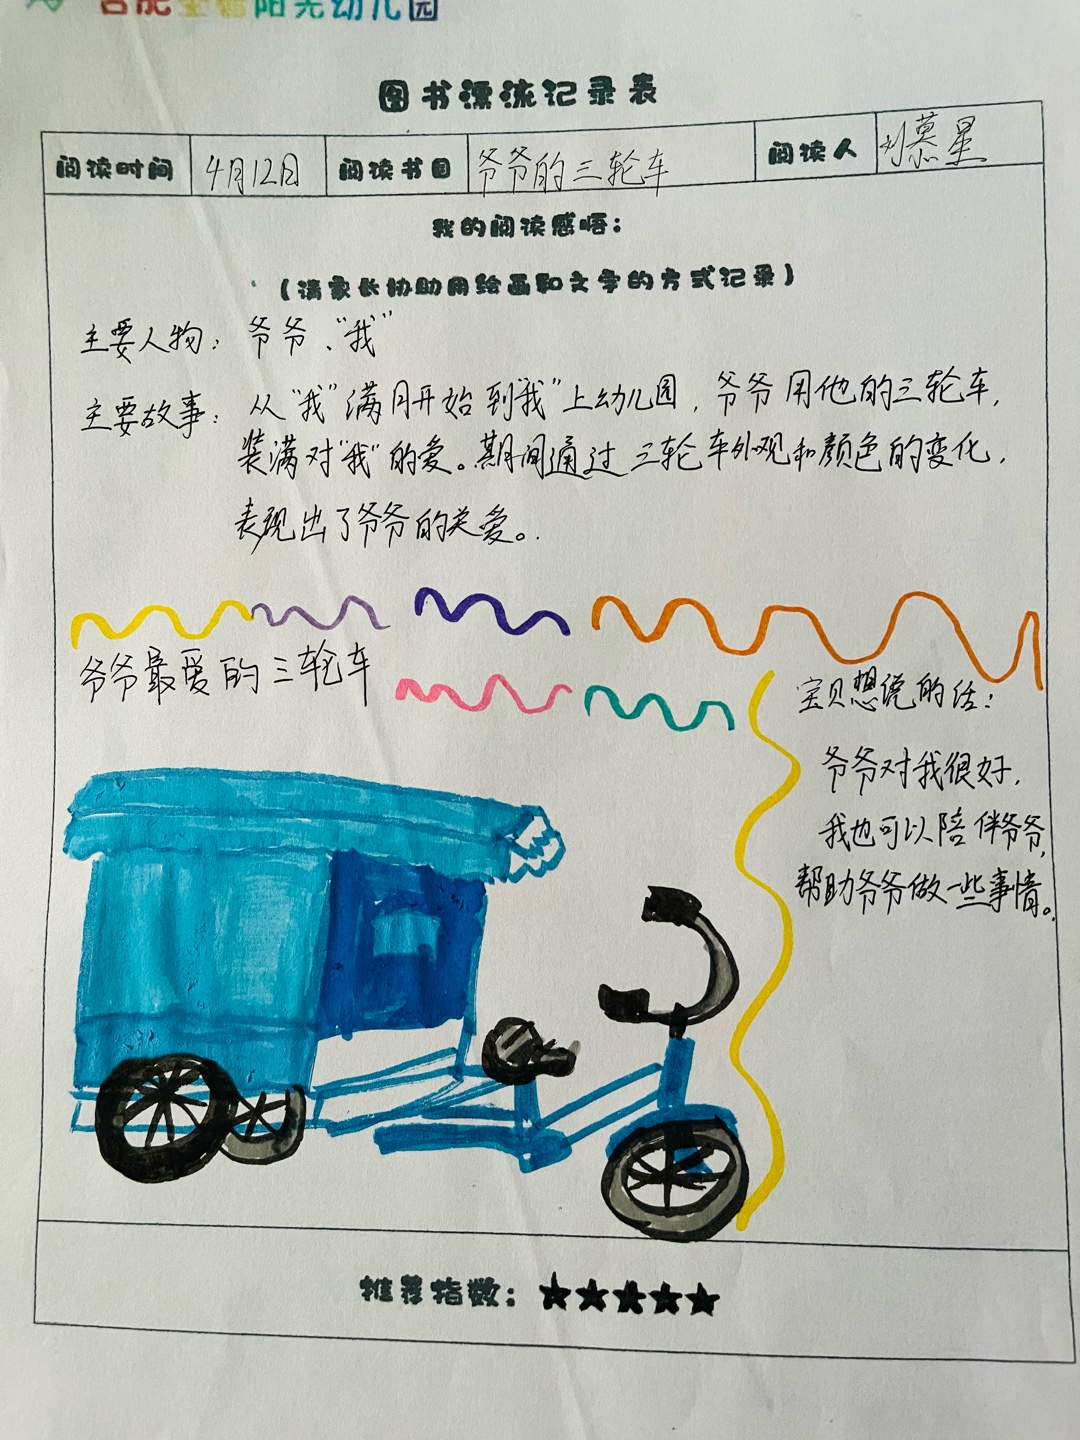 阳光幼儿园
图书漂流记录表
阅读时间 4月12日 阅读书目 爷爷的三轮车 阅读人 刘慕星
我的阅读感悟：
（请家长协助用绘画和文字的方式记录）
主要人物：爷爷、“我”
主要故事：从“我”满月开始到“我”上幼儿园，爷爷用他的三轮车，
装满对“我”的爱。期间通过三轮车外观和颜色的变化，
表现出了爷爷的关爱。
爷爷最爱的三轮车
宝贝想说的话：
爷爷对我很好，
我也可以陪伴爷爷，
帮助爷爷做一些事情。
推荐指数：★★★★★